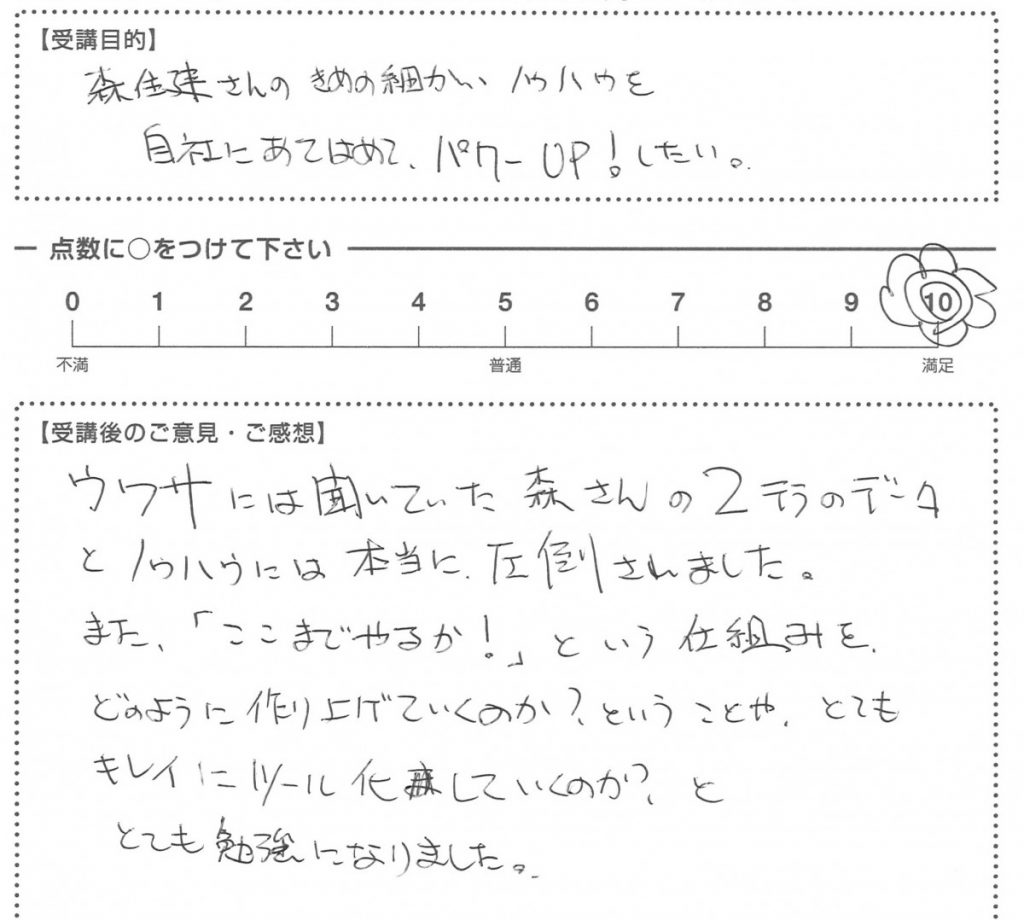 【受講目的】
森住建さんの きめの細かい ノウハウを
自社にあてはめて、パワーUP!したい。
点数に○をつけて下さい
0 1 2 3 4 5 6 7 8 9 10
不満 普通 満足
【受講後のご意見・ご感想】
ウワサには聞いていた 森さんの2テラのデータ
とノウハウには本当に、圧倒されました。
また、「ここまでやるか!」という仕組みを、
どのように作り上げていくのか?ということや、とても
キレイにツール化していくのか?と
とても勉強になりました。